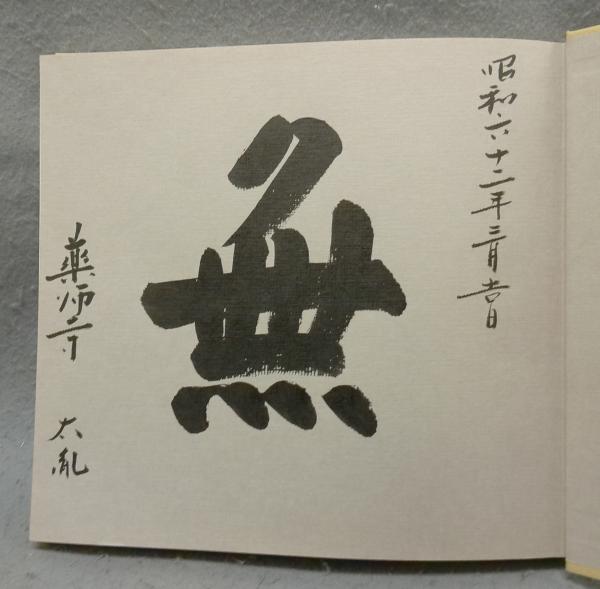 昭和六十二年三月吉日
無
薬師寺 太胤